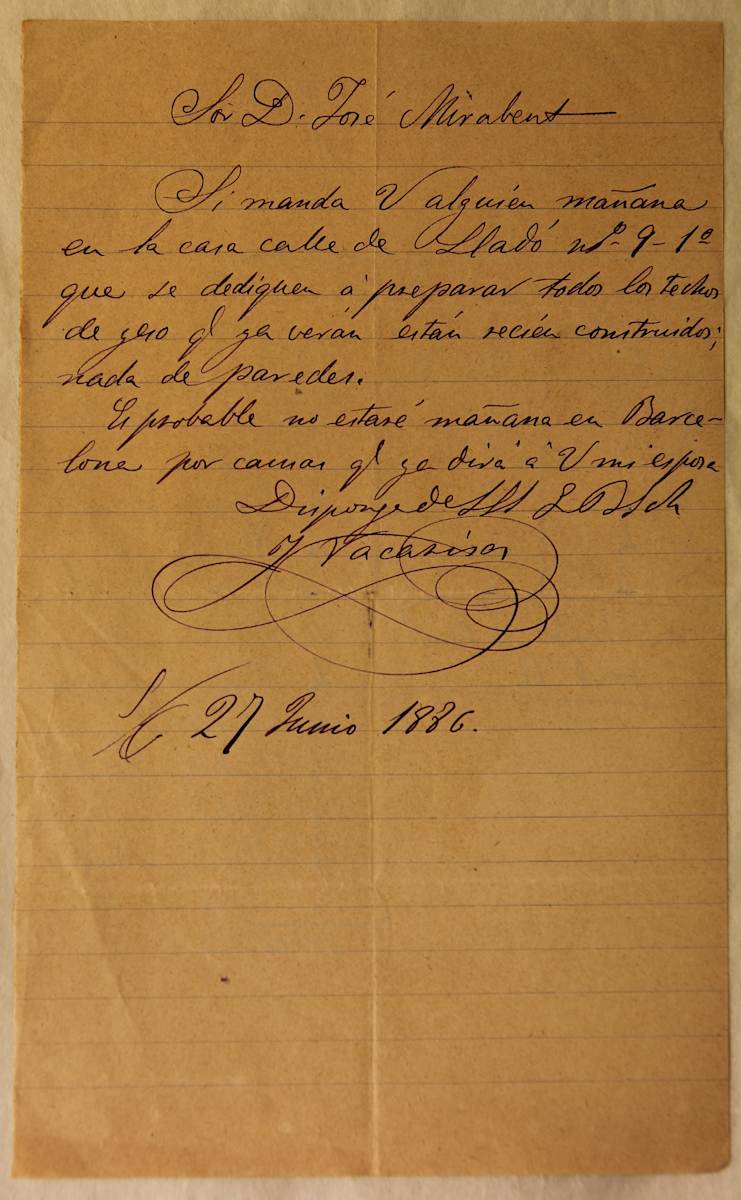 Sor D. José Mirabent
Si manda V alguien mañana
en la casa calle de Lladó nº 9-1º
que se dediquen á preparar todos los techos
de yeso q' ya verán están recién construidos;
nada de paredes.
Es probable no estaré mañana en Barce-
lona por causas q' ya dirá á V mi esposa
Disponga de
J Vacarisas
27 Junio 1886.